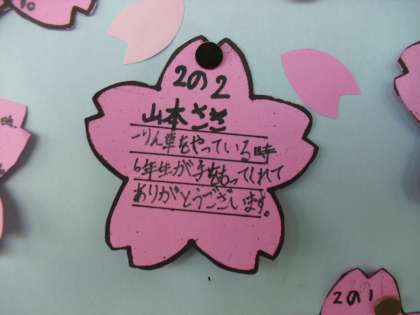 2の2
山本ささ
一りん車をやっている時
6年生が手をもってくれて
ありがとうございます。
2の1